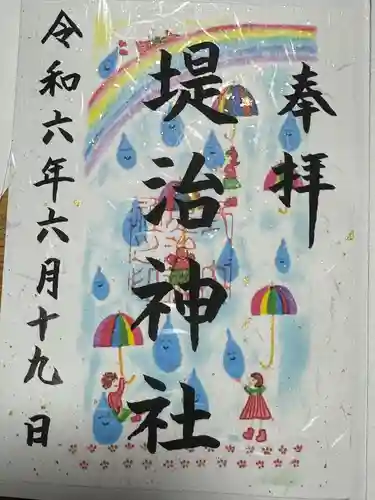 奉拝
堤治神社
令和六年六月十九日